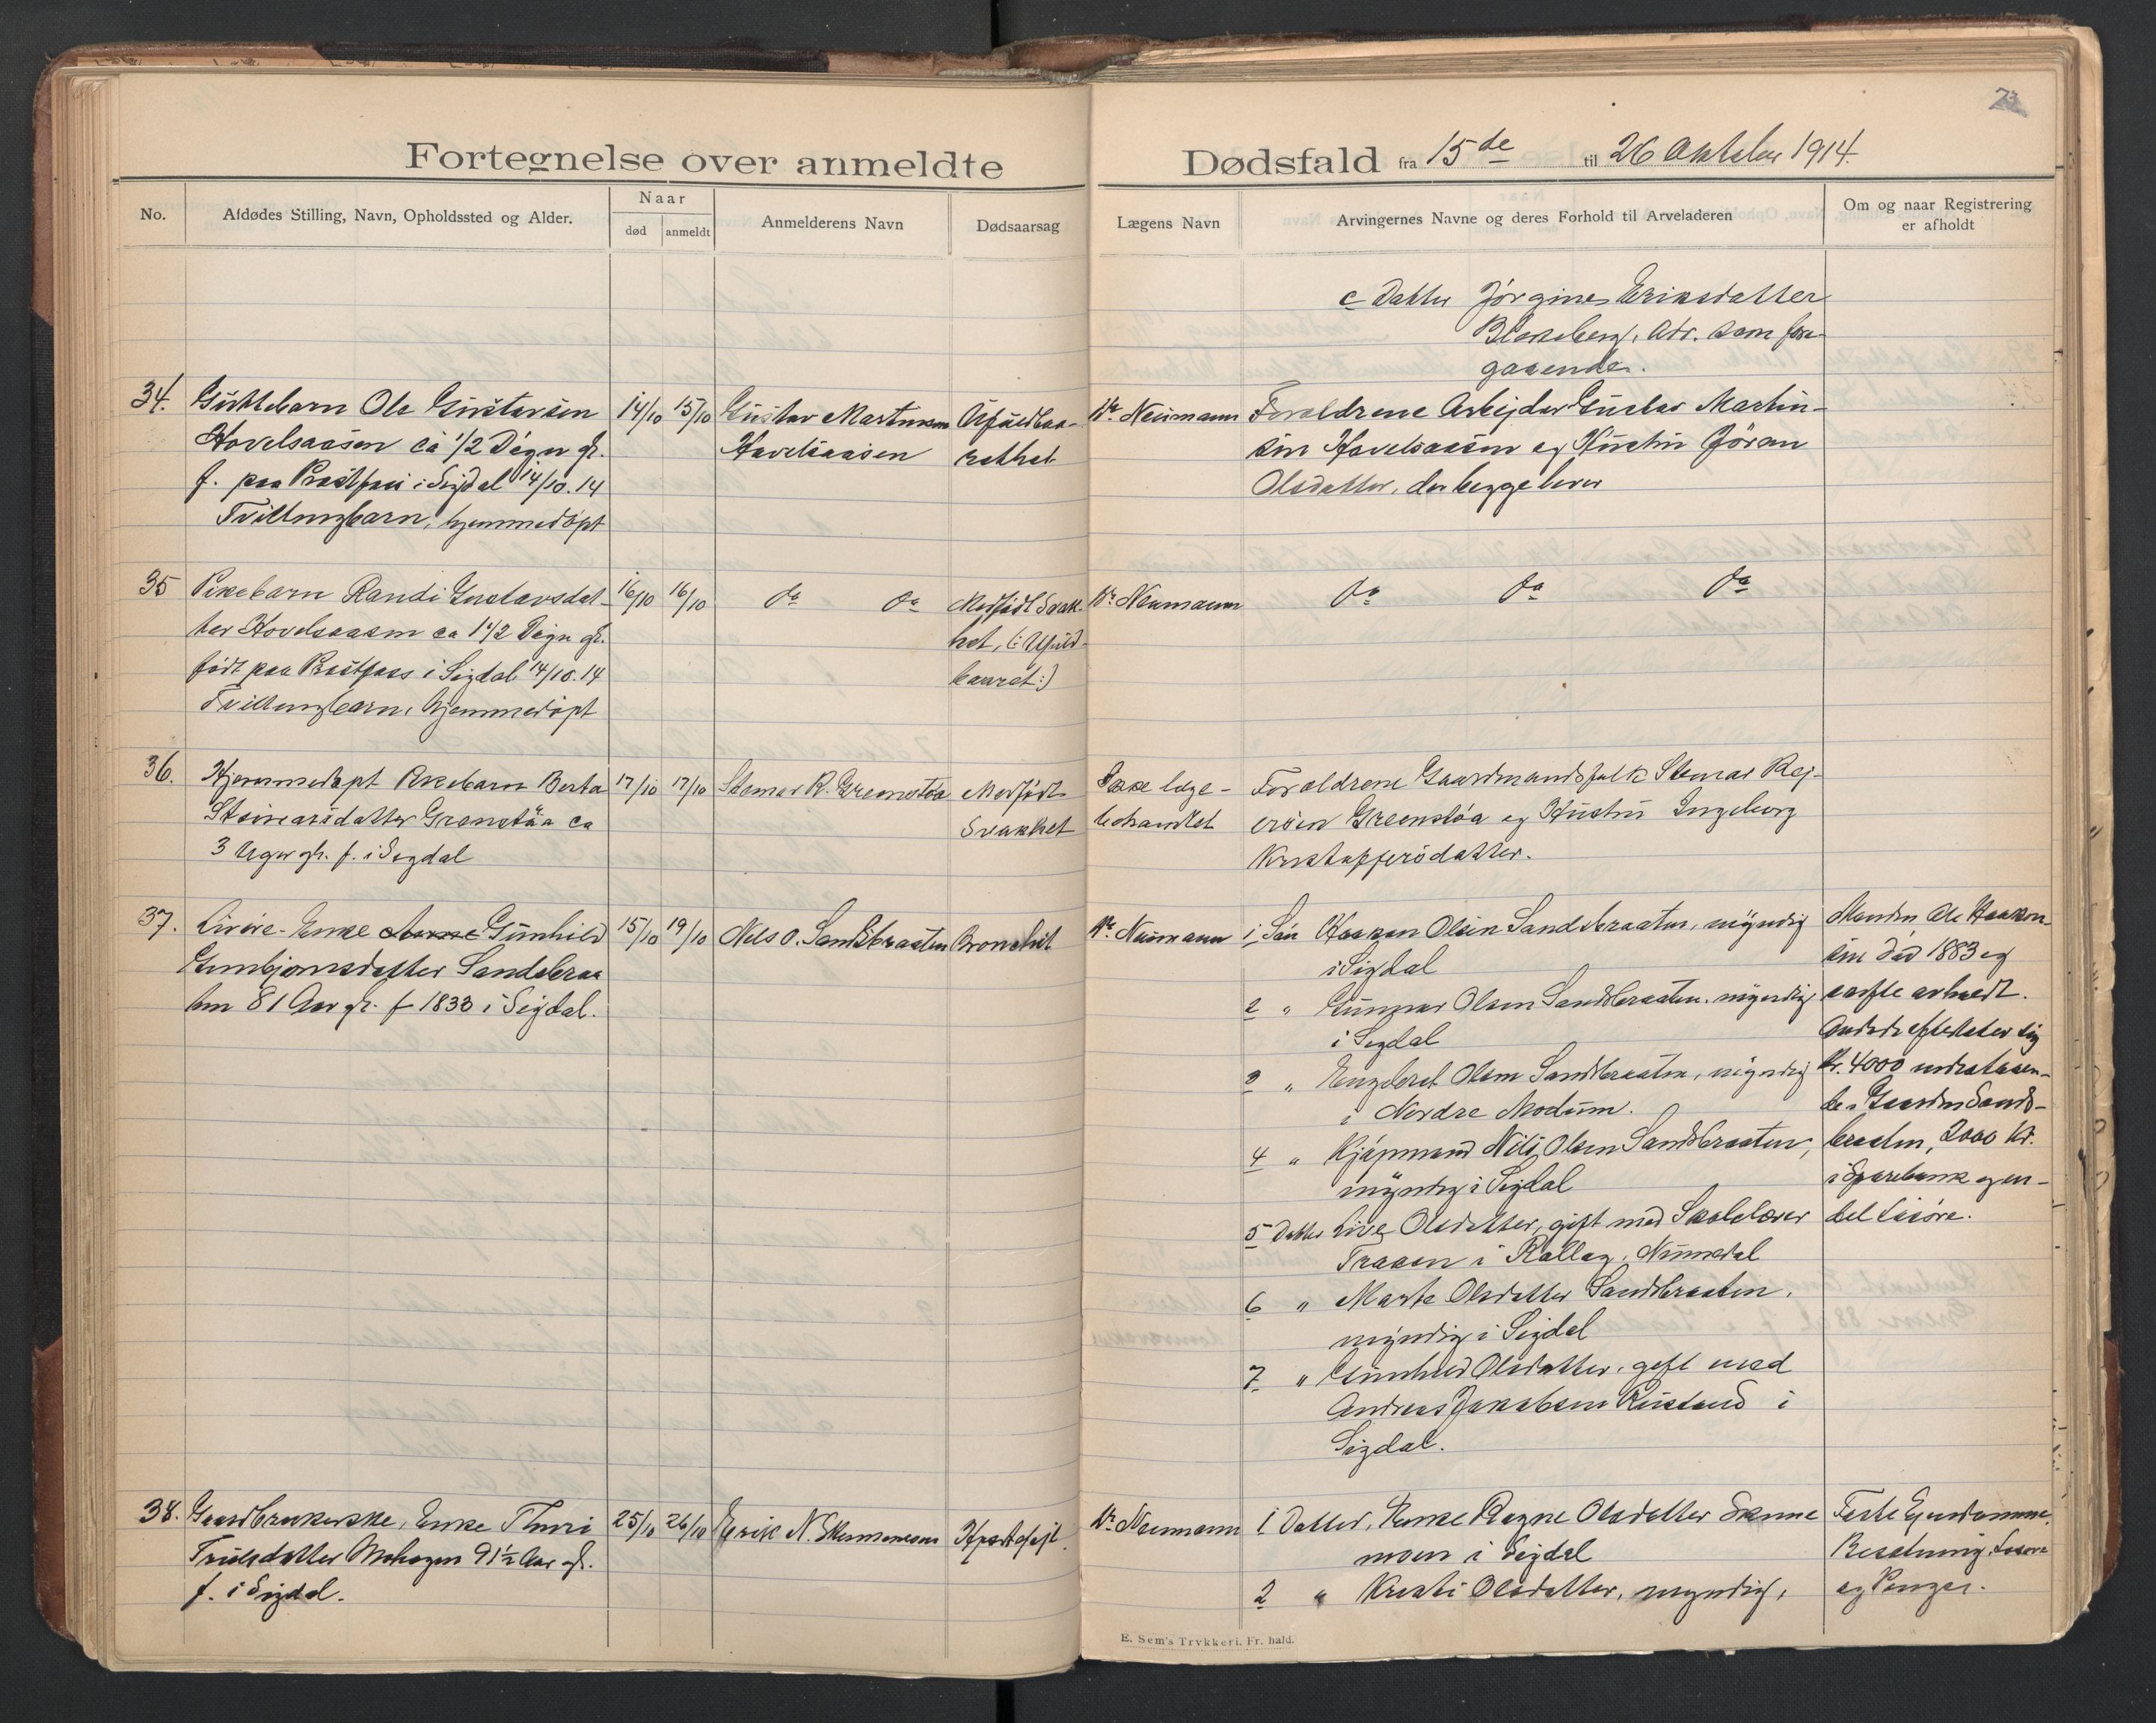 23
Fortegnelse over anmeldte Dødsfald fra 15de til 26 Oktober 1914.
No.
Afdødes Stilling, Navn, Opholdssted og Alder.
Naar
død
anmeldt
Anmelderens Navn
Dødsaarsag
Lægens Navn
Arvingernes Navne og deres Forhold til Arveladeren
Om og naar Registrering
er afholdt
c Datter Jørgine Eriksdatter
Adr. som fore-
gaaende.
34. Guttebarn Ole Gustavsen
Hovelsaasen ca 1/2 Døgn gl.
f. paa Prestfoss i Sigdal 14/10.14
Tvillingbarn, hjemmedøpt
14/10 15/10
Gustav Martinsen
Hovelsaasen
Ufuldbaa-
renhet
Dr. Neumann
Forældrene Arbejder Gustav Martin-
sen Hovelsaasen og Hustru Jøran
Olsdatter, der begge lever
35 Pikebarn Randi Gustavsdat-
ter Hovelsaasen ca 1 1/2 Døgn gl.
født paa Prestfoss i Sigdal 14/10.14
Tvillingbarn, hjemmedøpt
16/10 16/10
do do
Medfødt Svak-
het, (: Ufuld-
baaret :)
Dr. Neumann
do do do
36. Hjemmedøpt Pikebarn Berta
Steinarsdatter Grenstøa ca
3 Uger gl. f. i Sigdal
17/10 17/10
Stenar R. Grenstøa
Medfødt
Svakhet
Ikke læge-
behandlet
Forældrene Gaardmandsfolk Stenar Rej-
ersen Grenstøa og Hustru Ingeborg
Kristoffersdatter.
37. Livøre-Enke Gunhild
Gunbjørnsdatter Sandsbraa
ten 81 Aar gl. f. 1833 i Sigdal.
15/10 19/10
Nils O. Sandsbraaten
Bronchit
Dr. Neumann
1 Søn Haakon Olsen Sandsbraaten, myndig
i Sigdal
2 " Gunnar Olsen Sandsbraaten. myndig
i Sigdal
3 " Engebret Olsen Sandsbraaten, myndig
i Nordre Modum.
4 " Kjøpmand Nils Olsen Sandsbraaten,
myndig i Sigdal
5 Datter Live Olsdatter, gift med Skolelærer
Traaen i Rollag, Numedal
6 " Marte Olsdatter Sandsbraaten,
myndig i Sigdal
7 " Gunhild Olsdatter, gift med
Andreas Jakobsen Rustand i
Sigdal.
Manden Ole Haakon-
sen død 1883 og
Kr. 4000 indestaaen-
de i Gaarden Sands-
braaten, 2000 Kr.
i Sparebank og en
del Løsøre.
38. Gaardbrukerske, Enke Thuri
Truelsdatter 91 1/2 Aar gl.
f. i Sigdal.
25/10 26/10
Erik N. Skonnemoen
Hjertefejl.
Dr. Neumann
1 Datter, Enke Ragne Olsdatter
moen i Sigdal
2 " Kristi Olsdatter, myndig,
Faste Ejendomme,
Besætning, Løsøre
og Penger.
E. Sem's Trykkeri. Fr. hald.